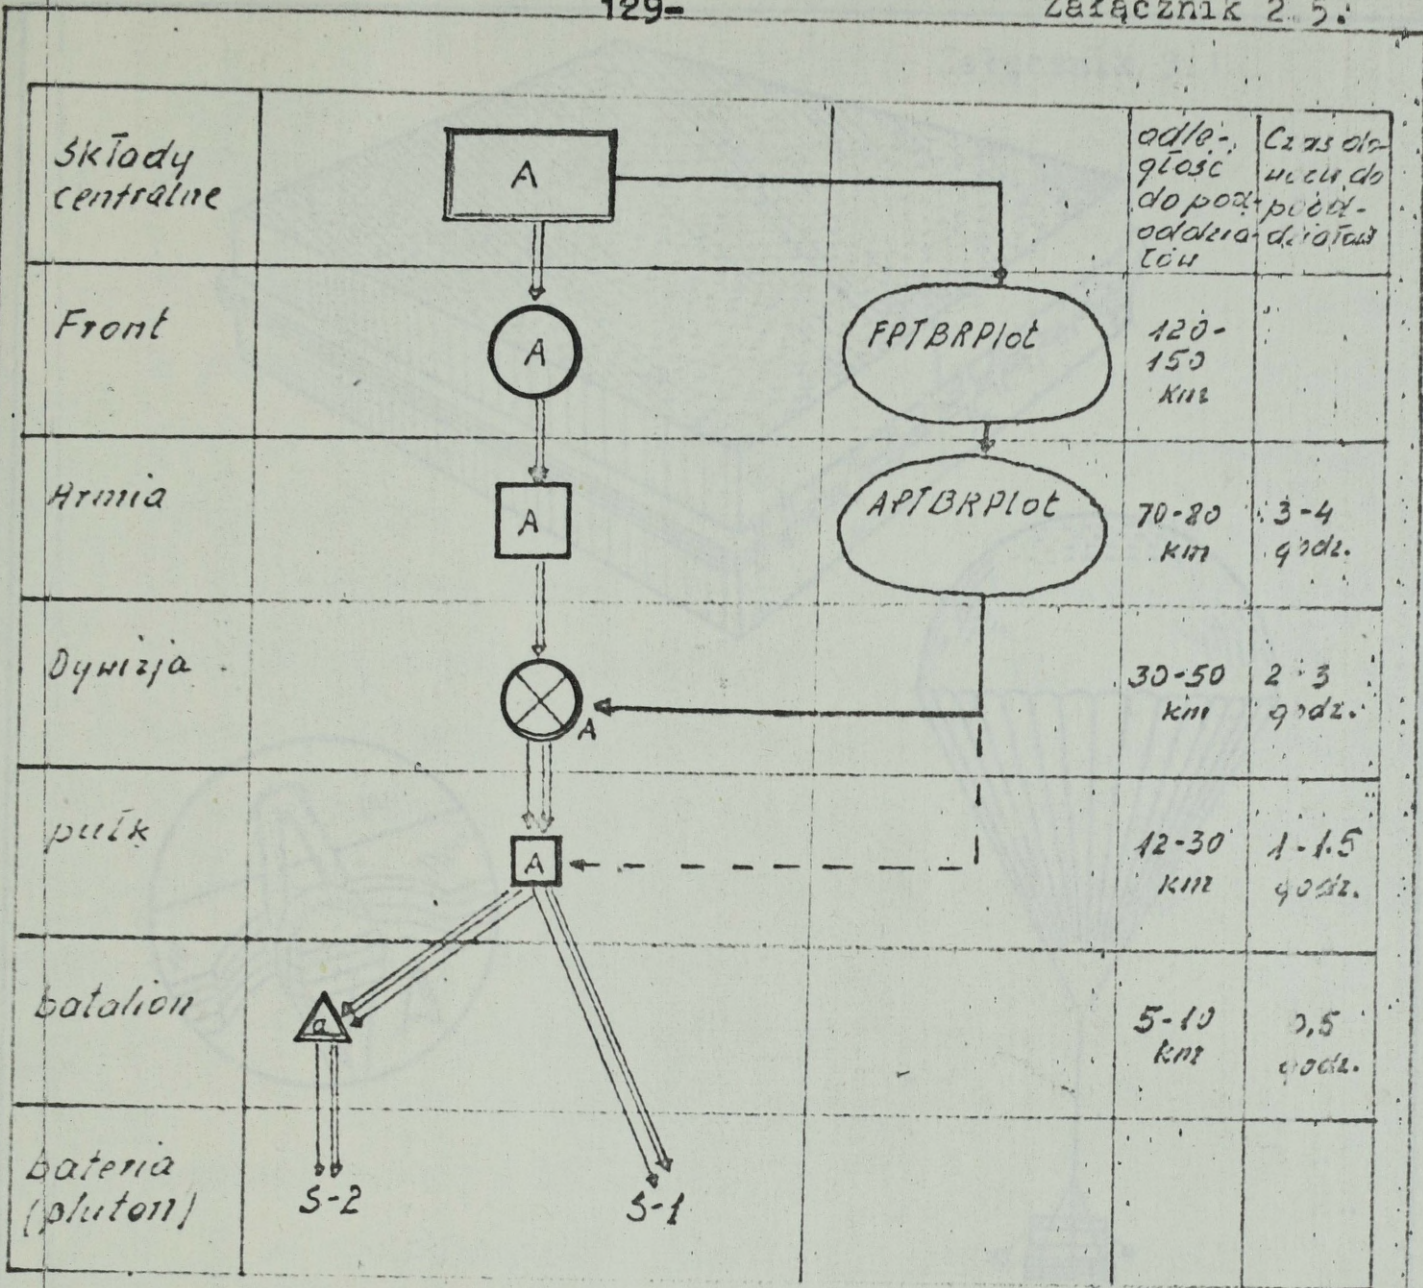 129-
Załącznik 2 5.
Składy
centralne
A
odle-
głość
do pod-
oddzia-
łów
Czas do-
wozu do
podod-
działów
Front
A
FPTBRPlot
120-
150
km
Armia
A
APTBRPlot
70-80
km
3-4
godz.
Dywizja
A
30-50
km
2-3
godz.
pułk
A
12-30
km
1-1.5
godz.
batalion
a
5-10
km
0,5
godz.
bateria
(pluton)
S-2
S-1